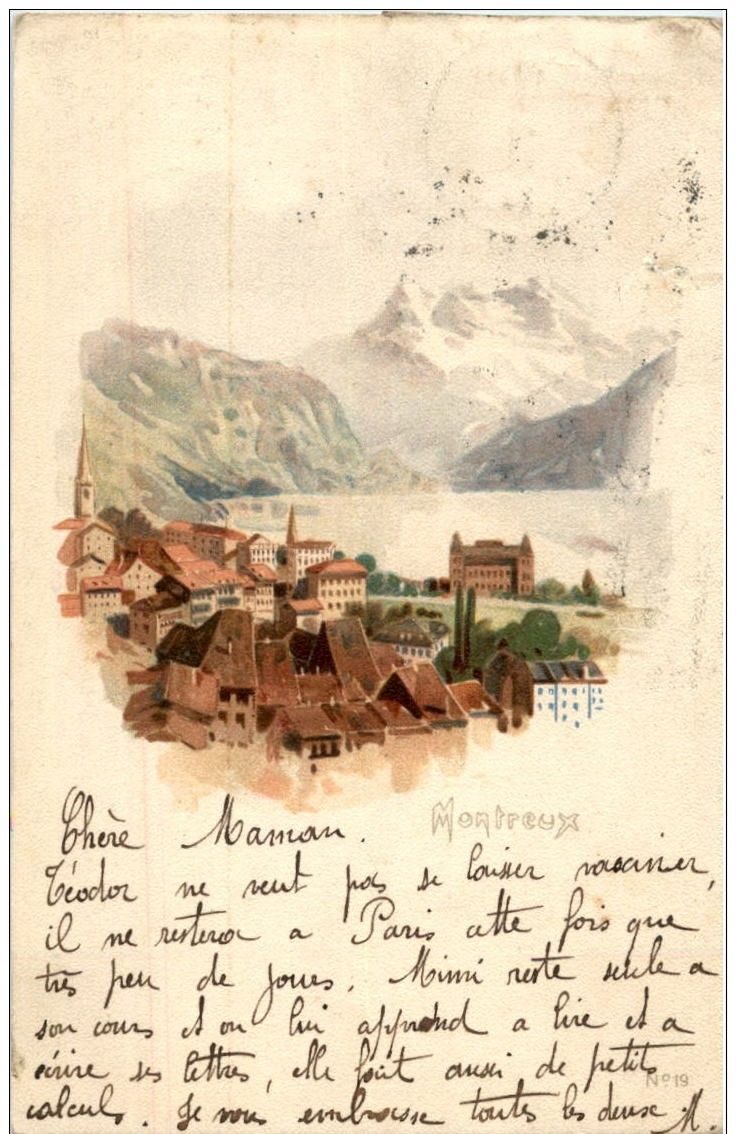 Montreux
Chère Maman.
Téodor ne veut pas se laisser vacciner,
il ne restera a Paris cette fois que
très peu de jours. Mimi reste seule a
son cours et on lui apprend a lire et a
écrire ses lettres, elle fait aussi de petits
No 19
calculs. Je vous embrasse toutes les deux M.